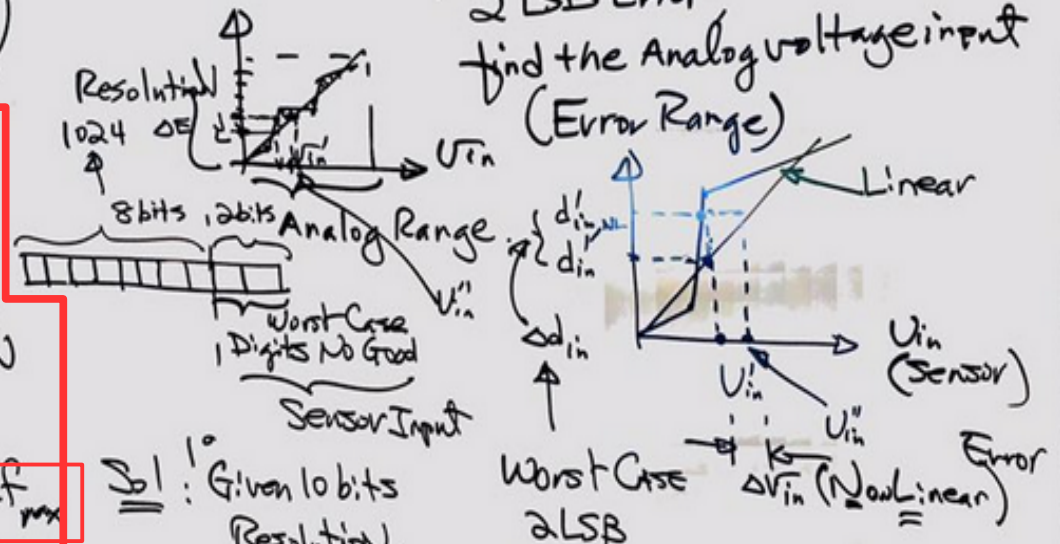 2 LSB Error
find the Analog voltage input
(Error Range)
Resolution
1024 ΔE
Vin
Vin'
8 bits, 2 bits
Analog Range
Vin''
Worst Case
Digits No Good
Sensor Input
Linear
d'in, NL
d'in
Δdin
Vin
(Sensor)
V'in
V''in
Error
ΔVin (NonLinear)
Worst Case
2LSB
max
Sol: 1° Given 10 bits
Resolution